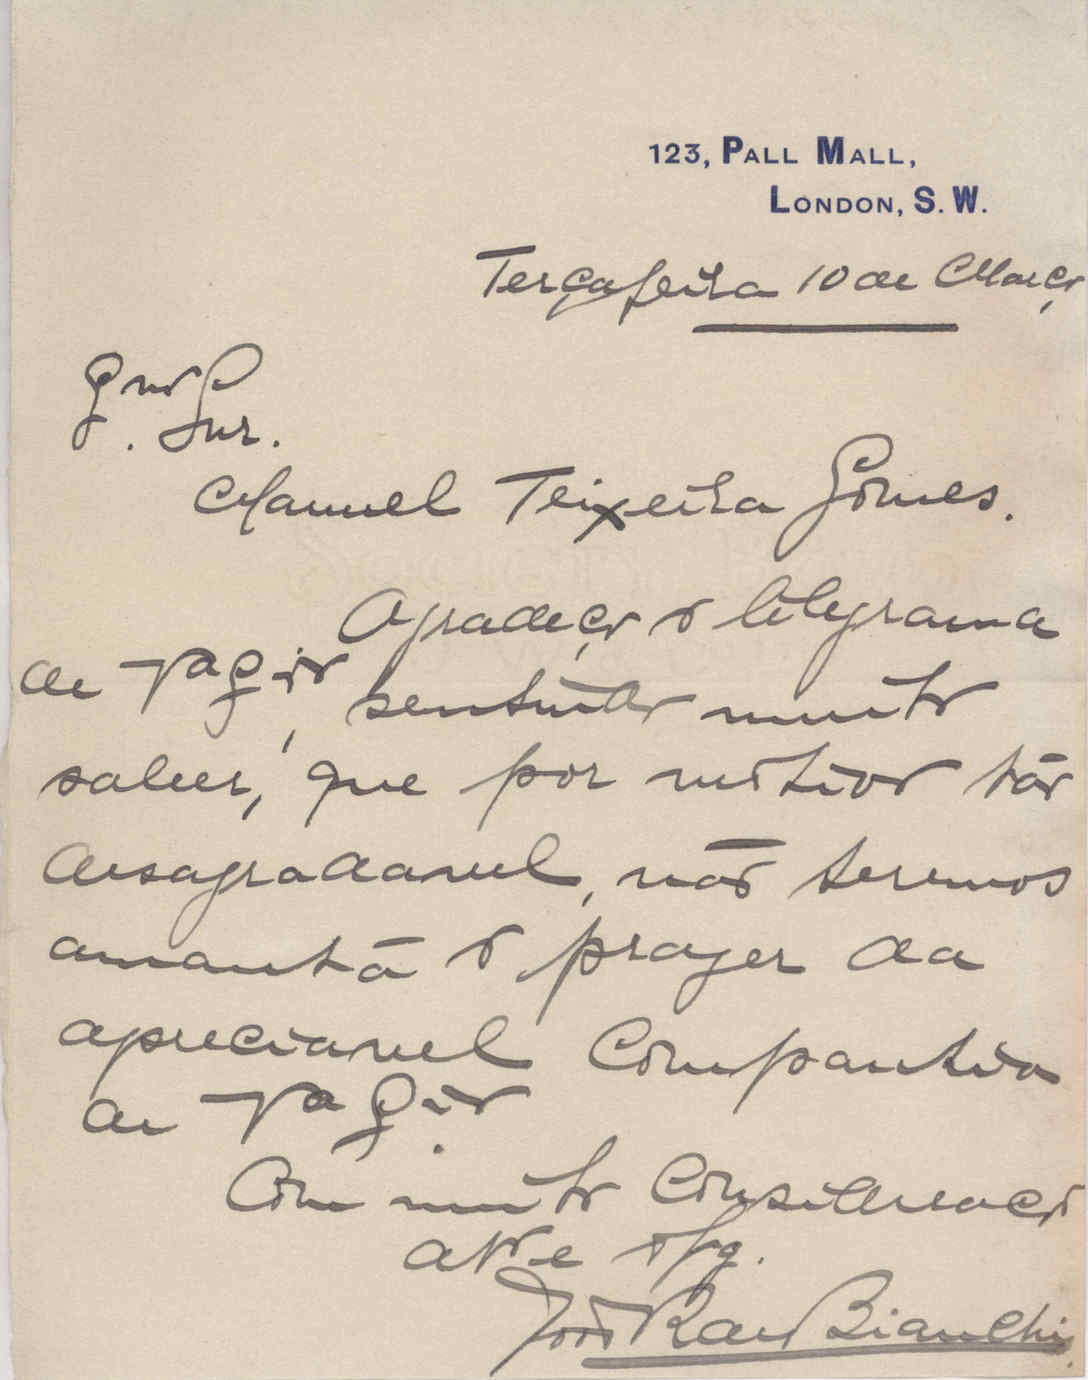 123, PALL MALL,
LONDON, S. W.
Terça feira 10 de Março
Exmo Snr.
Manuel Teixeira Gomes.
Agradeço o telegrama
de Va Exia, sentindo muito
saber, que por motivo tão
desagradavel, não teremos
amanhã o prazer da
apreciavel Companhia
de Va Exia.
Com muito Consideração
João Row Bianchi.